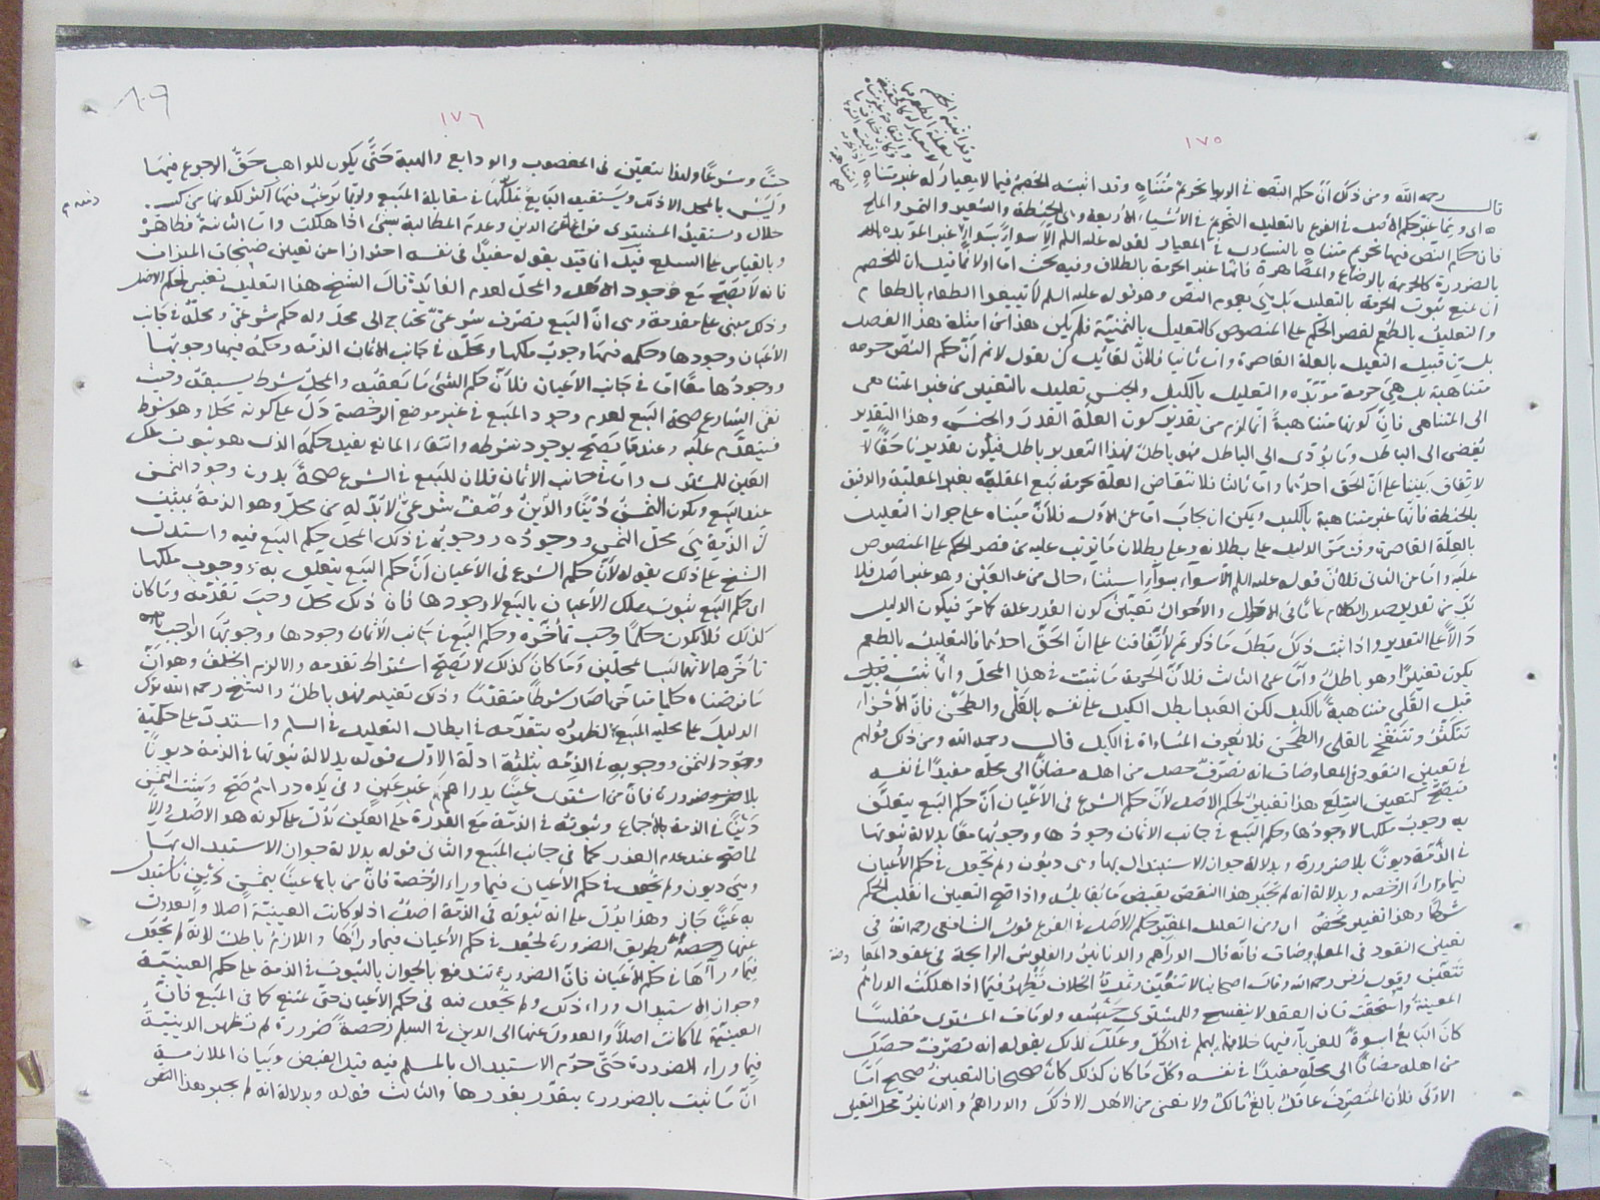 ١٧٥
قال رحمه الله ومن ذلك أن حكم النص في الربوا تحريم متناه وقد اثبت الخصم فيما لا معيار له غير متناه
اي ومما غير حكم الأصل في الفرع بالتعليل التحريم في الأشياء الأربعة وهي الحنطة والشعير والتمر والملح
فان حكم النص فيها تحريم متناه بالتساوي في المعيار لقوله عليه السلم الا سواء بسواء غير المؤبدة
بالضرورة كالحرمة بالرضاع والمصاهرة فاثباته غير الحرمة بالطلاق وفيه بحث اما اولا فما قيل ان للخصم
ان يمنع ثبوت الحرمة بالتعليل بل هي بعموم النص وهو قوله عليه السلم لا تبيعوا الطعام بالطعام
والتعليل بالطعم لقصر الحكم على المنصوص كالتعليل بالثمنية فلم يكن هذا من امثلة هذا الفصل
بل من قبيل التعليل بالعلة القاصرة واما ثانيا فلان لقائل ان يقول لا نم أن حكم النص حرمة
متناهية بل هي حرمة مؤبدة والتعليل بالكيل والجنس تعليل بالتغيير من غير المتناهي
الى المتناهي فان كونها متناهية انما لزم من تقدير كون العلة القدر والجنس وهذا التقدير
يفضي الى الباطل وما يؤدى الى الباطل فهو باطل فهذا التقدير باطل فيكون تقديرنا حقا
لاتفاق بيننا على ان الحق احدهما واما ثالثا فلانتقاض العلة بحرمة بيع المقلية بغير المقلية والدقيق
بالحنطة فانها غير متناهية بالكيل ويمكن ان يجاب اما عن الاول فلأن مبناه على جواز التعليل
بالعلة القاصرة وقد مر الدليل على بطلانه وعلى بطلان ما ترتب عليه من قصر الحكم على المنصوص
عليه واما عن الثاني فلان قوله عليه السلم الا سواء بسواء استثناء حالي من عم العين وهو غير اصل فلا
بد من تقدير صدر الكلام عاما في الاحوال والاحوال تعيين كون القدر علة كما مر فيكون الدليل
دالا على التقدير واذا ثبت ذلك بطل ما ذكرتم لاتفاقنا على ان الحق احدهما فالتعليل بالطعم
يكون تغييرا وهو باطل واما عن الثالث فلأن الحرمة ما ثبتت في هذا المحل وانما ثبت
قبل القلي متناهية بالكيل لكن العبد ابطل الكيل على نفسه بالقلي والطحن فان الأجزاء
تتكثر وتنتفخ بالقلي والطحن فلا يعرف المساواة في الكيل قال رحمه الله ومن ذلك قولهم
في تعيين النقود في المعاوضات انه تصرف حصل من اهله مضافا الى محله مفيدا في نفسه
فيصح كتعيين السلع وهذا تغيير لحكم الاصل لأن حكم الشرع في الأعيان أن حكم البيع يتعلق
به وجوب ملكها لا وجودها وحكم البيع في جانب الاثمان وجودها ووجوبها معا بدلالة ثبوتها
في الذمة ديونا بلا ضرورة وبدلالة جواز الاستبدال بها وهي ديون ولم يجعل في حكم الأعيان
فيما وراء الرخصة وبدلالة انه لم يجبر هذا النقص بقبض ما يقابله واذا صح التعيين انقلب الحكم
شرطا وهذا تغيير محض اي ومن التعليل المغير حكم الاصل في الفرع قول الشافعي رحمه الله في
تعيين النقود في المعاوضات فانه قال الدراهم والدنانير والفلوس الرايجة في عقود المعا
تتعين وقول زفر رحمه الله وقال اصحابنا لا تتعين وثمرة الخلاف تظهر فيما اذا هلكت الدراهم
المعينة واستحقت فان العقد لا ينفسخ وللمشتري حبسه ولو مات المشتري مفلسا
كان البايع اسوة للغرماء فيها خلافا لهم في الكل وعلل لذلك بقوله انه تصرف حصل
من اهله مضافا الى محله مفيدا في نفسه وكل ما كان كذلك كان صحيحا فالتعيين صحيح اما
الاولى فلأن المتصرف عاقل بالغ مالك ولا نعني من الاهل الا ذلك والدراهم والدنانير محل التعيين
٨٠٩
١٧٦
حسا وشرعا ولهذا يتعين في المغصوب والودايع والهبة حتى يكون للواهب حق الرجوع فيها
وليس بالمحل الا ذلك ويستفيد البايع تملكها في مقابلة المبيع ولربما يرغب فيها اكثر لكونها من كسب
حلال ويستفيد المشتري فراغا عن الدين وعدم المطالبة بشيء اذا هلكت واما الثانية فظاهرة
وبالقياس على السلع قيل انما قيد بقوله مفيدا في نفسه احترازا من تعيين صنجات الميزان
فانه لا يصح مع وجود الاهل والمحل لعدم الفايدة قال الشيخ هذا التعليل تغيير لحكم الاصل
وذلك مبني على مقدمة وهي ان البيع تصرف شرعي يحتاج الى محل وله حكم شرعي ومحله في جانب
الأعيان وجودها وحكمه فيها وجوب ملكها ومحله في جانب الاثمان الذمة وحكمه فيها وجوبها
ووجودها معا اما في جانب الأعيان فلأن حكم الشئ ما يعقبه والمحل شرط يسبقه وحيث
نفى الشارع صحة البيع لعدم وجود المبيع في غير موضع الرخصة دل على كونه محلا وهو شرط
فيتقدم عليه وعندها يصح بوجود شرطه وانتفاء المانع يفيد حكمه الذي هو ثبوت ملك
العين للمشتري واما في جانب الاثمان فلان للبيع في الشرع صحة بدون وجود الثمن
عند البيع ويكون الثمن دينا والدين وصف شرعي لا بد له من محل وهو الذمة فيثبت
ان الذمة هي محل الثمن ووجوده ووجوبه في ذلك المحل حكم البيع فيه واستدل
الشيخ على ذلك بقوله لأن حكم الشرع في الأعيان أن حكم البيع يتعلق به وجوب ملكها
اي حكم البيع ثبوت ملك الأعيان بالبيع لا وجودها فان ذلك محل وجب تقدمه وما كان
كذلك فلا يكون حكما وجب تأخره وحكم البيع في جانب الأثمان وجودها ووجوبها الواجب
تأخرهما لانهما ليسا بمحلين وما كان كذلك لا يصح اشتراط تقدمه والا لزم الخلف وهو ان
ما فرضناه حكما متأخرا صار شرطا متقدما وذلك تغيير فهو باطل والشيخ رحمه الله ترك
الدليل على محلية المبيع لظهوره بتقدمه في ابطال التعليل في السلم واستدل على حكمية
وجود الثمن ووجوبه في الذمة بثلثة ادلة الاول قوله بدلالة ثبوتها في الذمة ديونا
بلا ضرورة فان من اشترى عينا بدراهم غير عين وفي يده دراهم صح ويثبت الثمن
دينا في الذمة بالاجماع وثبوته في الذمة مع القدرة على العين يدل على كونه هو الاصل والا
لما صح عند عدم العذر كما في جانب المبيع والثاني قوله بدلالة جواز الاستبدال بها
وهي ديون ولم يجعل في حكم الأعيان فيما وراء الرخصة فان من باع عينا بثمن دين فاستبدل
به عينا جاز وهذا يدل على انه ثبوته في الذمة اصل اذ لو كانت العينية أصلا والعدول
عنها رخصة بطريق الضرورة لجعل في حكم الأعيان فيما وراءها واللازم باطل لانه لم يجعل
فيما وراءها في حكم الأعيان فان الضرورة تندفع بالجواز بالثبوت في الذمة على حكم العينية
وجواز الاستبدال وراء ذلك ولم يجعل فيه في حكم الأعيان حتى يمتنع كما في المبيع فان
العينية لما كانت اصلا والعدول عنها الى الدين في السلم رخصة ضرورة لم تظهر الدينية
فيما وراء الضرورة حتى حرم الاستبدال بالمسلم فيه قبل القبض وبيان الملازمة
ان ما ثبت بالضرورة يتقدر بقدرها والثالث قوله وبدلالة انه لم يجبر هذا النقص